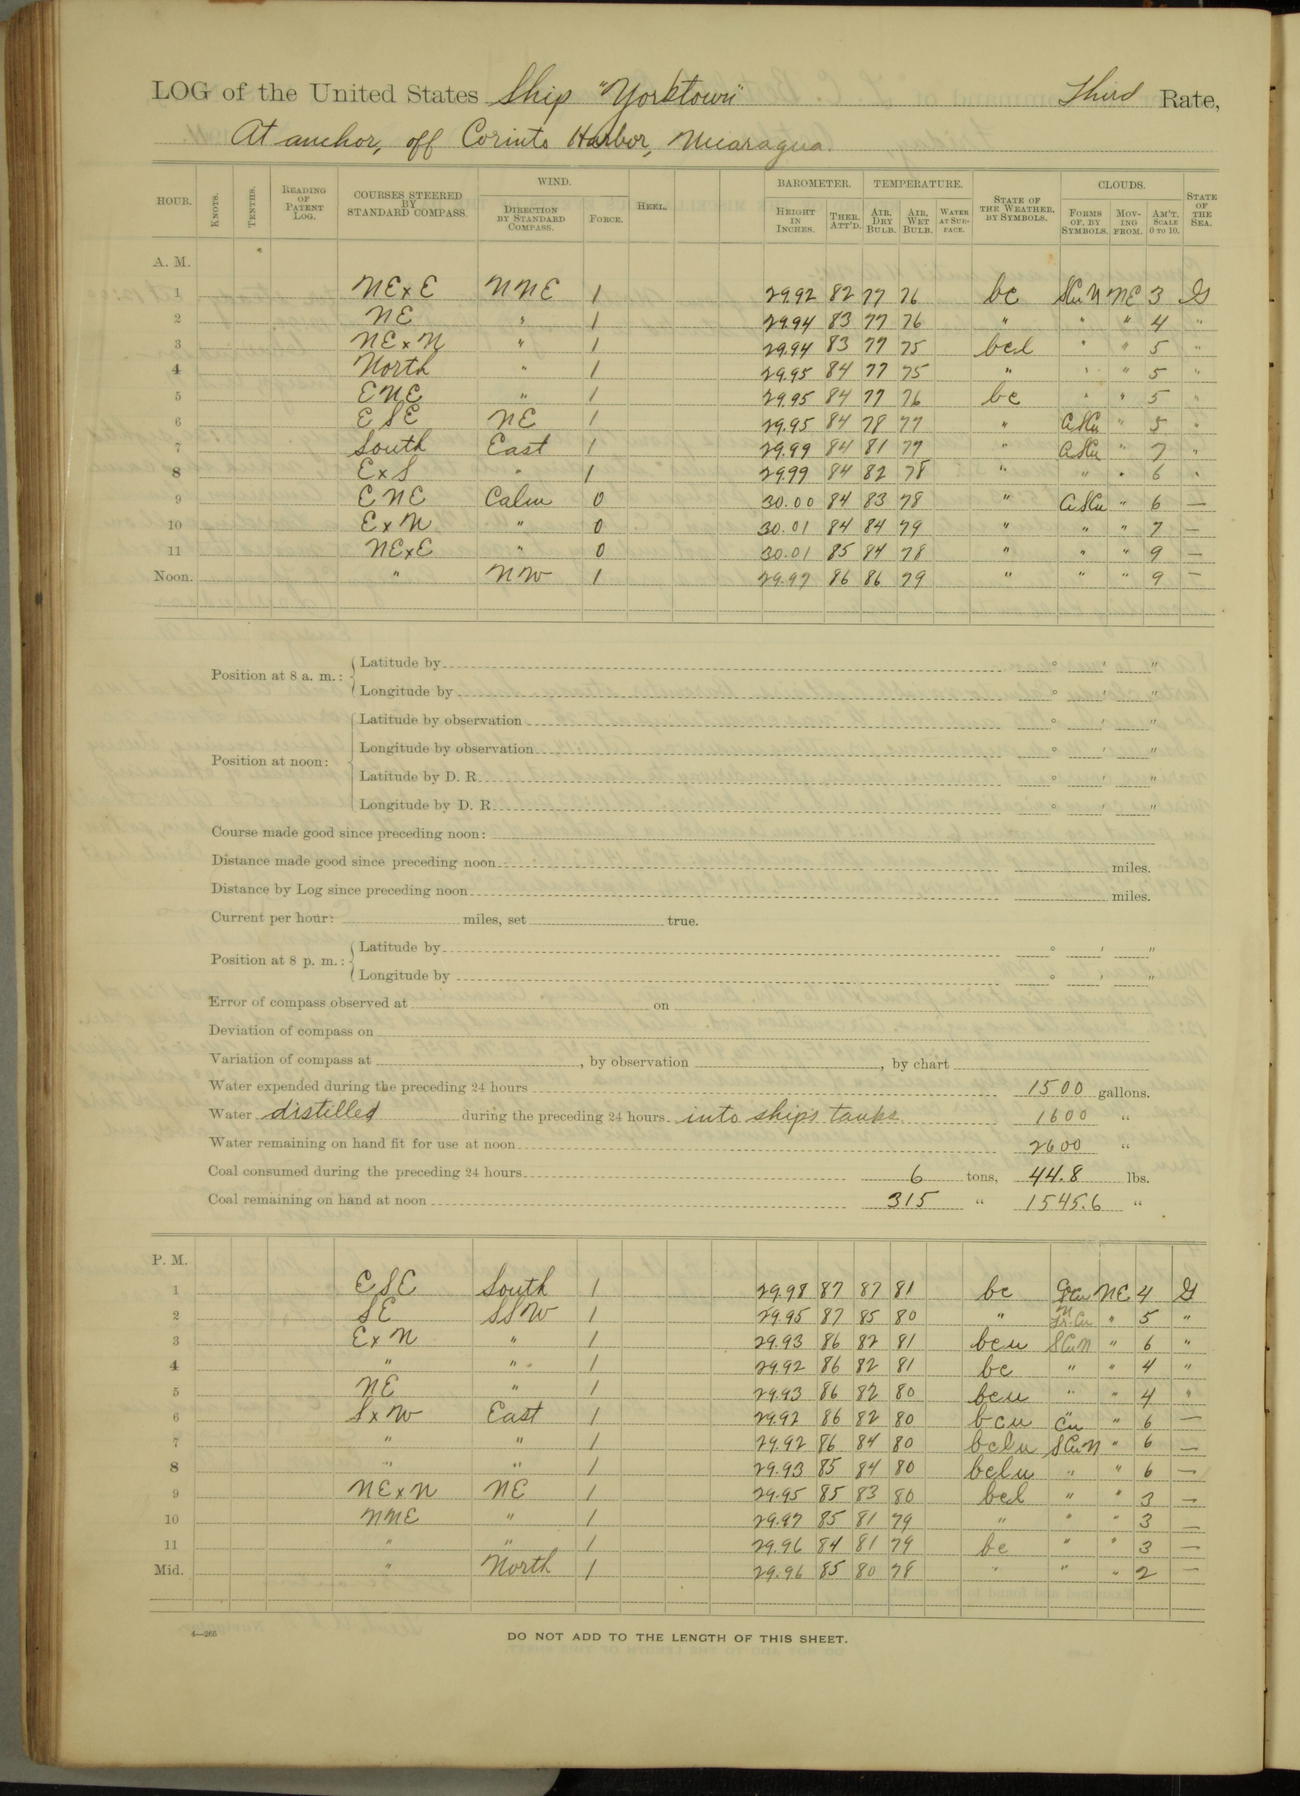 LOG of the United States Ship "Yorktown" Third Rate,
At anchor, off Corinto Harbor, Nicaragua.
HOUR. KNOTS. TENTHS. READING OF PATENT LOG. COURSES STEERED BY STANDARD COMPASS. WIND. DIRECTION BY STANDARD COMPASS. FORCE. HEEL. BAROMETER. HEIGHT IN INCHES. THER. ATT'D. TEMPERATURE. AIR, DRY BULB. AIR, WET BULB. WATER AT SURFACE. STATE OF THE WEATHER, BY SYMBOLS. CLOUDS. FORMS OF, BY SYMBOLS. MOVING FROM. AM'T, SCALE 0 TO 10. STATE OF THE SEA.
A. M.
1 NExE NNE 1 29.92 82 77 76 bc SCuN NE 3 G
2 NE " 1 29.94 83 77 76 " " " 4 "
3 NExN " 1 29.94 83 77 75 bcl " " 5 "
4 North " 1 29.95 84 77 75 " " " 5 "
5 ENE " 1 29.95 84 77 76 bc " " 5 "
6 ESE NE 1 29.95 84 78 77 " ASCu " 5 "
7 South East 1 29.99 84 81 77 " ASCu " 7 "
8 ExS " 1 29.99 84 82 78 " " " 6 "
9 ENE Calm 0 30.00 84 83 78 " ASCu " 6 —
10 ExN " 0 30.01 84 84 79 " " " 7 —
11 NExE " 0 30.01 85 84 78 " " " 9 —
Noon. " NW 1 29.97 86 86 79 " " " 9 —
Position at 8 a. m.: Latitude by ° ' "
Longitude by ° ' "
Position at noon: Latitude by observation ° ' "
Longitude by observation ° ' "
Latitude by D. R. ° ' "
Longitude by D. R. ° ' "
Course made good since preceding noon:
Distance made good since preceding noon miles.
Distance by Log since preceding noon miles.
Current per hour: miles, set true.
Position at 8 p. m.: Latitude by ° ' "
Longitude by ° ' "
Error of compass observed at on
Deviation of compass on
Variation of compass at , by observation , by chart
Water expended during the preceding 24 hours 1500 gallons.
Water distilled during the preceding 24 hours into ships tanks 1600 "
Water remaining on hand fit for use at noon 2600 "
Coal consumed during the preceding 24 hours 6 tons, 44.8 lbs.
Coal remaining on hand at noon 315 " 1545.6 "
P. M.
1 ESE South 1 29.98 87 87 81 bc NE 4 G
2 SE SSW 1 29.95 87 85 80 " " 5 "
3 ExN " 1 29.93 86 82 81 bcu SCuN " 6 "
4 " " 1 29.92 86 82 81 bc " " 4 "
5 NE " 1 29.93 86 82 80 bcu " " 4 "
6 SxW East 1 29.92 86 82 80 bcu Cu " 6 —
7 " " 1 29.92 86 84 80 bclu SCuN " 6 —
8 " " 1 29.93 85 84 80 bclu " " 6 —
9 NExN NE 1 29.95 85 83 80 bcl " " 3 —
10 NNE " 1 29.97 85 81 79 " " " 3 —
11 " " 1 29.96 84 81 79 bc " " 3 —
Mid. " North 1 29.96 85 80 78 " " " 2 —
4—266
DO NOT ADD TO THE LENGTH OF THIS SHEET.